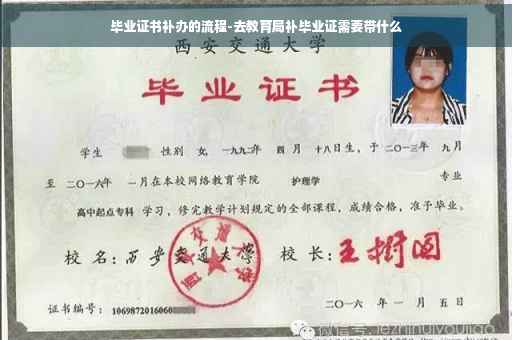 毕业证书补办的流程-去教育局补毕业证需要带什么
西安交通大学
毕业证书
学生 性别 女, 一九九二年 四 月 十八日生, 于 二〇一三年 九月
至 二〇一六年 一月在本校网络教育学院 护理学 专业
高中起点专科 学习, 修完教学计划规定的全部课程, 成绩合格, 准予毕业。
校 名: 西安交通大学 校 长: 王树国
西安交通大学
证书编号: 1069872016060
二〇一六 年 一 月 五 日
微信号: jezhinuiyoujiao